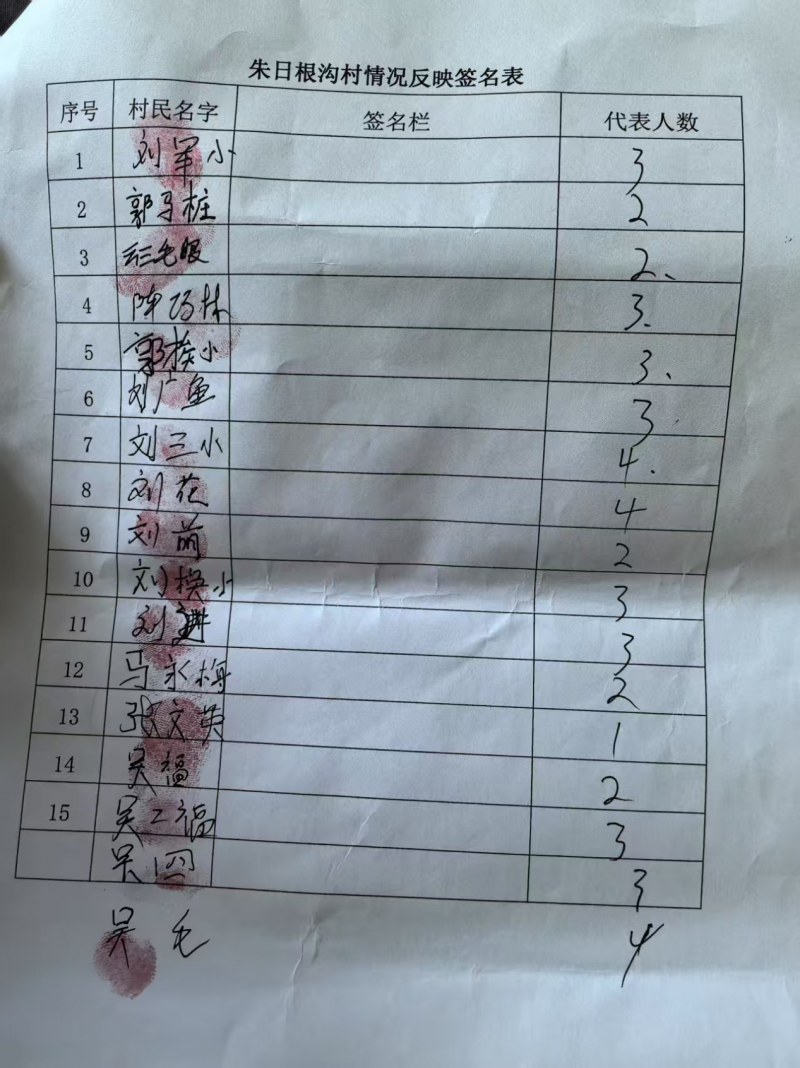 朱日根沟村情况反映签名表
序号 村民名字 签名栏 代表人数
1 刘军小 3
2 郭马桩 2
3 毛眼 2、
4 陈巧林 3.
5 郭挨小 3、
6 刘广鱼 3
7 刘三小 4.
8 刘花 4
9 刘前 2
10 刘换小 3
11 刘进 3
12 马永梅 2
13 张文英 1
14 吴福 2
15 吴二福 3
吴四 3
吴毛 4